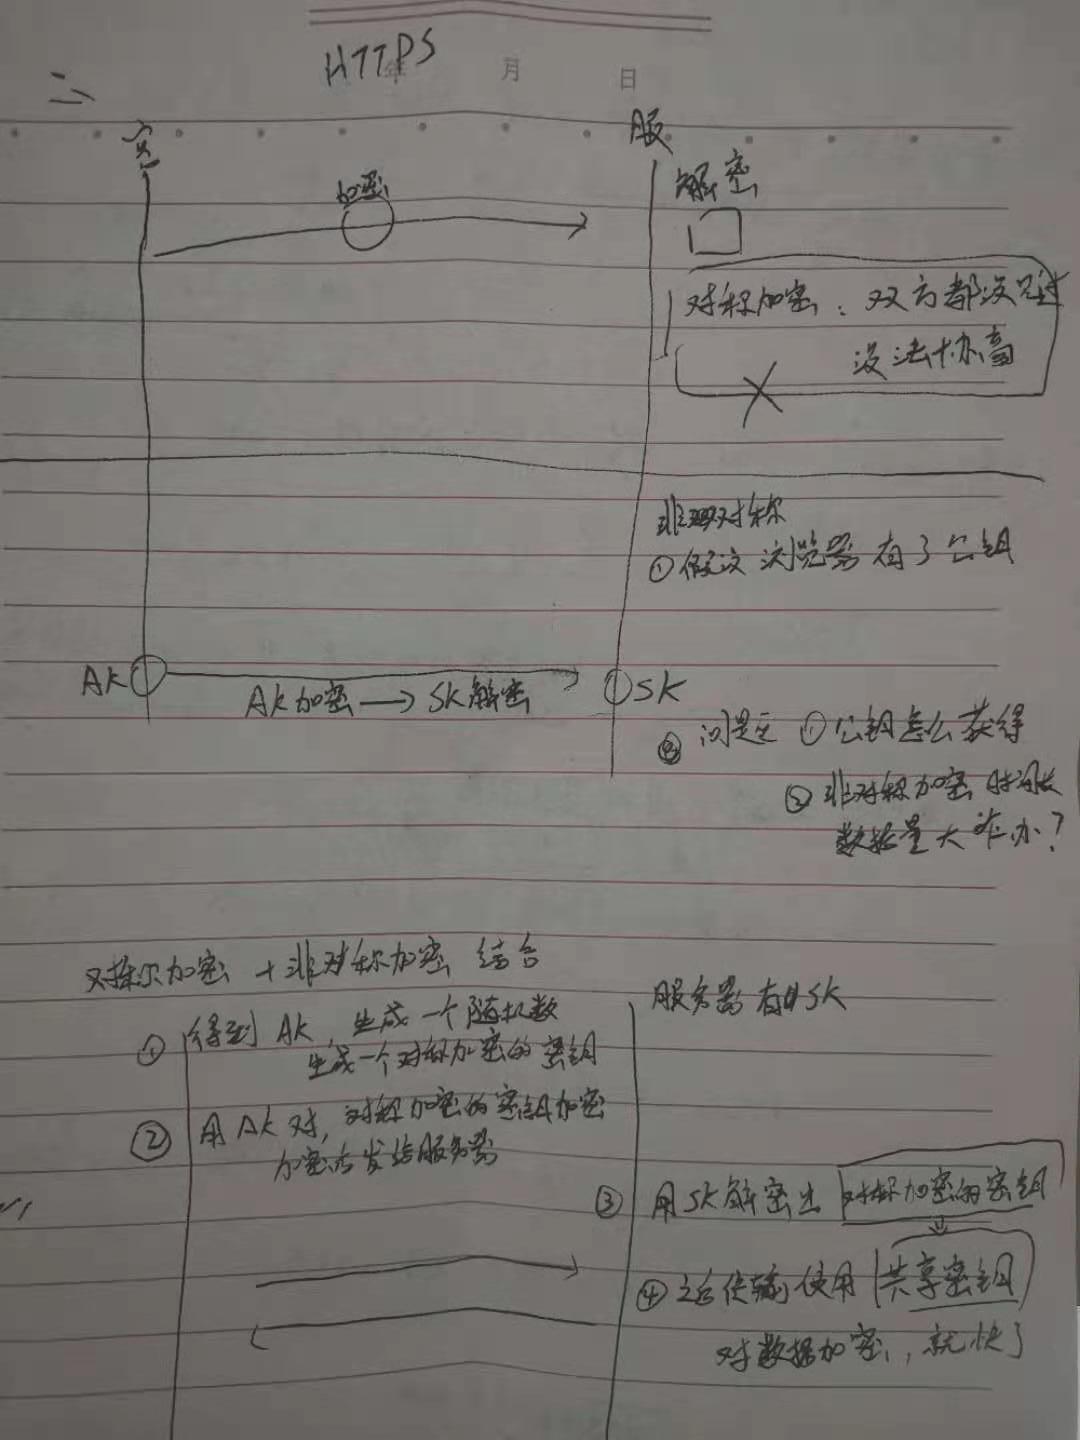 HTTPS
年 月 日
二、
客
服
加密
解密
对称加密：双方都没见过
没法协商
非对称
① 假设 浏览器 有了公钥
AK
AK加密→SK解密
SK
② 问题 ① 公钥怎么获得
② 非对称加密 时间长
数据量大咋办？
对称加密 + 非对称加密 结合
服务器 有 SK
① 得到 AK，生成一个随机数
生成一个对称加密的密钥
② 用AK对，对称加密的密钥加密
加密后发给服务器
③ 用SK解密出 对称加密的密钥
④ 之后传输使用 共享密钥
对数据加密，就快了